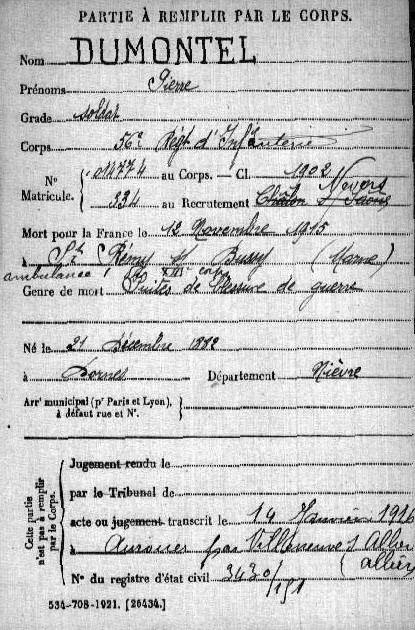 PARTIE À REMPLIR PAR LE CORPS.
Nom DUMONTEL
Prénoms Pierre
Grade soldat
Corps 56e Régt d'Infanterie
N° Matricule. { 014774 au Corps. — Cl. 1902
234 au Recrutement Châlon s/ Saone Nevers
Mort pour la France le 12 Novembre 1915
à St Rémy s/ Bussy (Marne)
ambulance 1/10 XIIIe corps
Genre de mort Suites de Blessure de guerre
Né le 21 décembre 1882
à Dornes Département Nièvre
Arrt municipal (pr Paris et Lyon), à défaut rue et N°. }
Cette partie n'est pas à remplir par le Corps.
Jugement rendu le
par le Tribunal de
acte ou jugement transcrit le 14 Janvier 1916
à Aurouer par Villeneuve s/ Allier
(allier)
N° du registre d'état civil 3430/151
534-708-1921. [26434.]